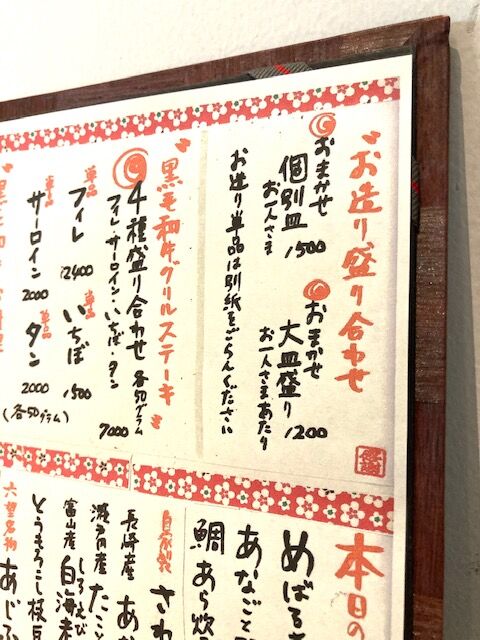 "お造り盛り合わせ"
おまかせ
個別皿
お一人さま
1500
おまかせ
大皿盛り
お一人さまあたり
1200
お造り単品は別紙をごらんください
"黒毛和牛グリルステーキ"
4種盛り合わせ 各50グラム
フィレ・サーロイン・いちぼ・タン
7000
単品
フィレ
2400
単品
いちぼ
1500
単品
サーロイン
2000
単品
タン
2000
(各50グラム)
本日の
めばる
あなごと
鯛あら炊
自家製
さわ
長崎産
あ
瀬戸内産
たこと
富山産
しろえび
白海老
とうもろこし枝豆
六望名物
あじふ